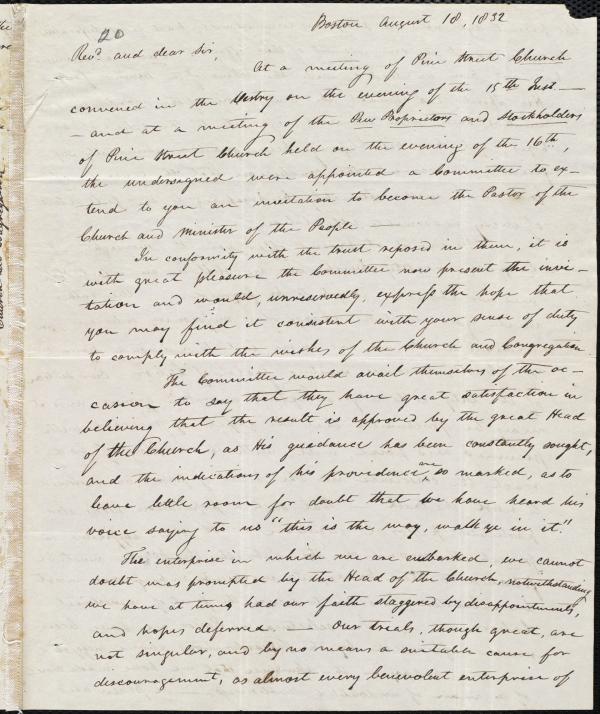 20
Boston August 18, 1832
Revd. and dear Sir,
At a meeting of Pine Street Church
convened in the Vestry on the evening of the 15th Inst. —
— and at a meeting of the Pew Proprietors and Stockholders
of Pine Street Church held on the evening of the 16th,
the undersigned were appointed a Committee to ex-
tend to you an invitation to become the Pastor of the
Church and Minister of the People —
In conformity with the trust reposed in them, it is
with great pleasure the Committee now present the invi-
tation and would, unreservedly, express the hope that
you may find it consistent with your sense of duty
to comply with the wishes of the Church and Congregation
The Committee would avail themselves of the oc-
casion to say that they have great satisfaction in
believing that the result is approved by the great Head
of the Church, as His guidance has been constantly sought,
and the indications of his providence are so marked, as to
leave little room for doubt that we have heard his
voice saying to us "this is the way, walk ye in it."
The enterprise in which we are embarked, we cannot
doubt was prompted by the Head of the Church, notwithstanding
we have at times had our faith staggered by disappointments,
and hopes deferred — Our trials, though great, are
not singular, and by no means a suitable cause for
discouragement, as almost every benevolent enterprise of